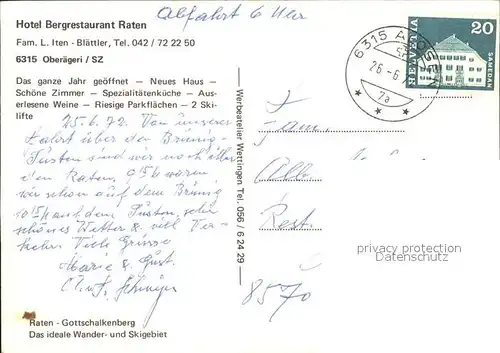 Abfahrt 6 Uhr
Hotel Bergrestaurant Raten
Fam. L. Iten - Blättler, Tel. 042 / 72 22 50
6315 Oberägeri / SZ
Das ganze Jahr geöffnet — Neues Haus —
Schöne Zimmer — Spezialitätenküche — Aus-
erlesene Weine — Riesige Parkflächen — 2 Ski-
lifte
25.6.72. Von unserer
Fahrt über den Brünig-
sind wir noch über
den Raten. 9 Uhr waren
wir schon auf dem Brünig
10 auf dem sehr
schönes Wetter & viel Ver-
kehr. Viele Grüsse
Marie & Gust.
Raten - Gottschalkenberg
Das ideale Wander- und Skigebiet
Werbeatelier Wettingen Tel. 056 / 6 24 29
6315
26.-6.
7a
HELVETIA
20
SAMEDAN
Fam.
Rest.
8570
privacy protection